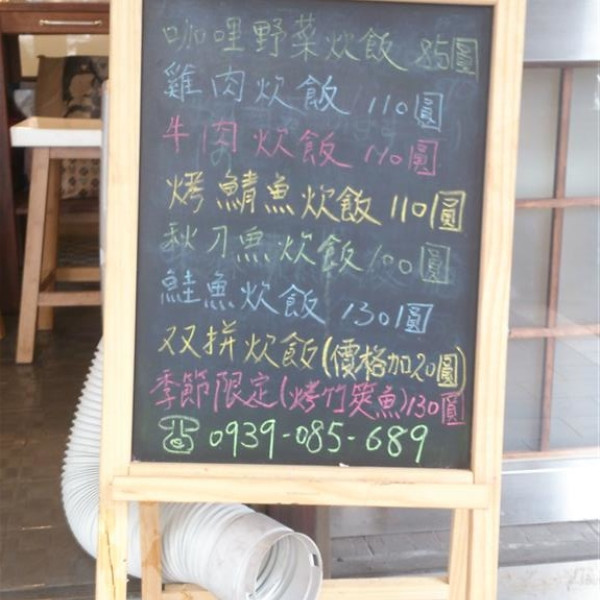 咖哩野菜炊飯 85圓
雞肉炊飯 110圓
牛肉炊飯 110圓
烤鯖魚炊飯 110圓
秋刀魚炊飯 100圓
鮭魚炊飯 130圓
双拼炊飯(價格加20圓)
季節限定(烤竹筴魚)130圓
☎ 0939-085-689